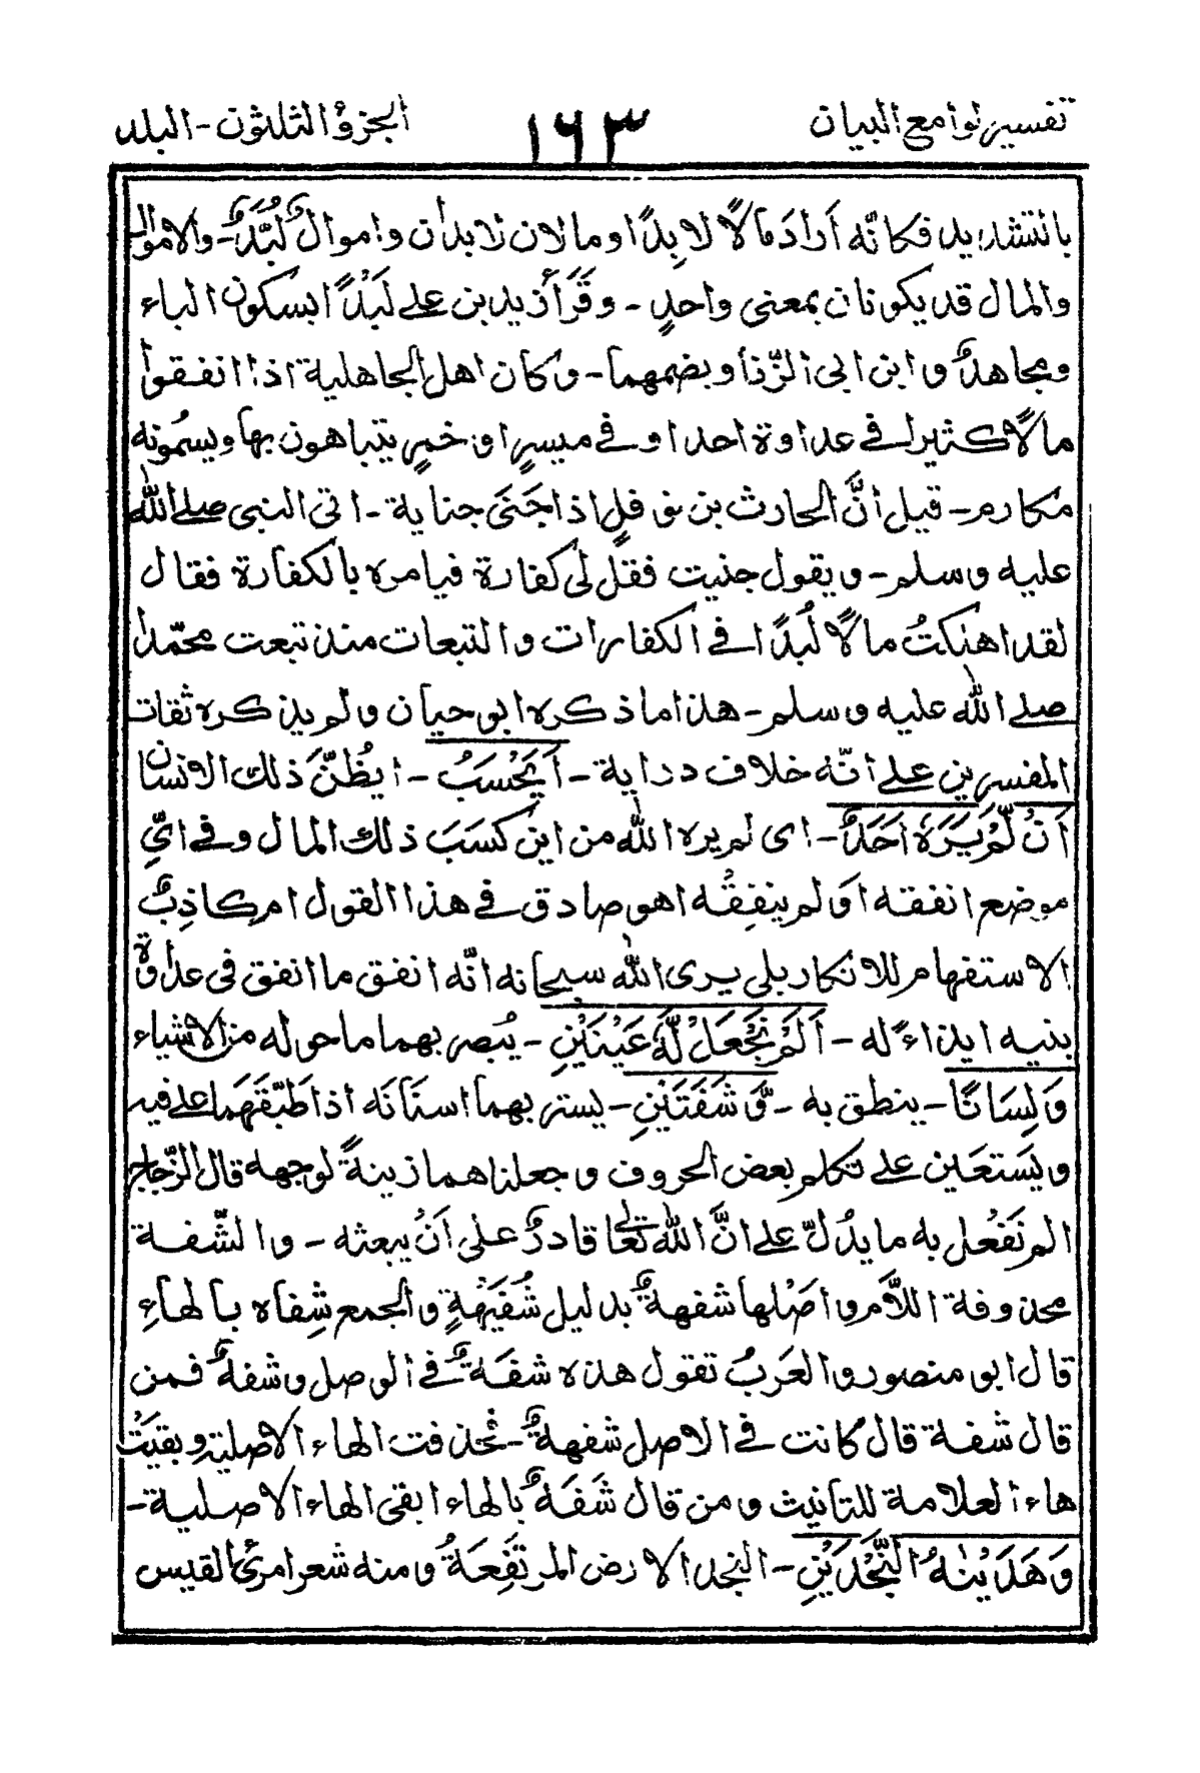 تفسير لوامع البيان
١٦٣
الجزؤ الثلثون - البلد
بالتشديد فكانّه أرادَ مالًا لابِدًا ومالان لابدان واموالٌ لُبَّدٌ - والاموال
والمال قد يكونان بمعنى واحدٍ - وقَرَأ زيد بن علي لَبْدًا بسكون الباء
ومجاهدٌ وابن ابى الزّناد بضمهما - وكان اهل الجاهلية اذا انفقوا
مالًا كثيرا في عداوة احد او في ميسرٍ او خمرٍ يتباهون بها ويسمُونه
مكارم - قيل أنَّ الحارث بن نوفلٍ اذا جَنَى جناية - اتى النبى صلے الله
عليه وسلم - ويقول جنيت فقل لى كفارة فيامره بالكفارة فقال
لقد اهلكتُ مالًا لُبدًا في الكفارات والتبعات منذ تبعت محمّدا
صلے الله عليه وسلم - هذا ما ذكره ابو حيان ولم يذكره ثقات
المفسرين علے انّه خلاف دراية - أَيَحْسَبُ - ايظُنّ ذلك الانسان
أَنْ لَّمْ يَرَهٗ أَحَدٌ - اى لم يره الله من اين كَسَبَ ذلك المال وفي ايِّ
موضع انفقه أوَلم ينفِقْه اهو صادق في هذا القول ام كاذِبٌ
الاستفهام للانكار بلى يرى الله سبحانه انّه انفق ما انفق فى عداوة
بنيه ايذاءً له - أَلَمْ نَجْعَلْ لَّهٗ عَيْنَيْنِ - يُبصر بهما ما حوله من الاشياء
وَلِسَانًا - ينطق به - وَّشَفَتَيْنِ - يستر بهما اسنَانَه اذا طَبّقَهَما على فيه
ويَستعَين علے تكلم بعض الحروف وجعلناهما زينةً لوجهه قال الزّجاج
الم نَفْعل به ما يدُلّ علے انَّ الله تعالى قادرٌ على أنْ يبعثه - والشّفة
محذوفة اللاَّم واصْلها شفهةٌ بدليل شُفَيْهَةٍ والجمع شِفاه بالهاءِ
قال ابو منصور والعَربُ تقول هذه شفَةٌ في الوصل وشفهٌ فمن
قال شفة قال كانت في الاصل شفهةٌ - فحذفت الهاء الاصلية وبقيَتْ
هاء العلامة للتانيث ومن قال شَفَهٌ بالهاء ابقى الهاء الاصلية -
وَهَدَيْنٰهُ النَّجْدَيْنِ - النجد الارض المرتَفِعَةُ ومنه شعر امرئ القيس